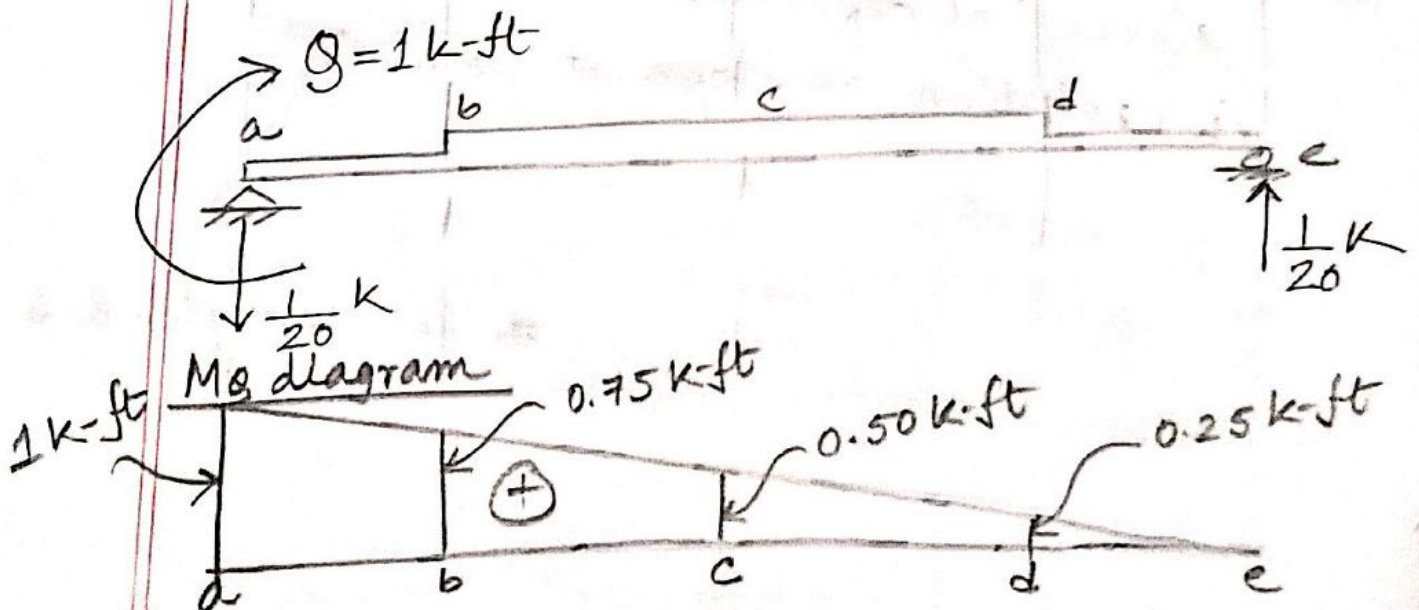 Q=1 k-ft
a b c d e
1/20 K
1/20 K
MQ diagram
1 k-ft
0.75 k-ft
0.50 k-ft
0.25 k-ft
+
a b c d e